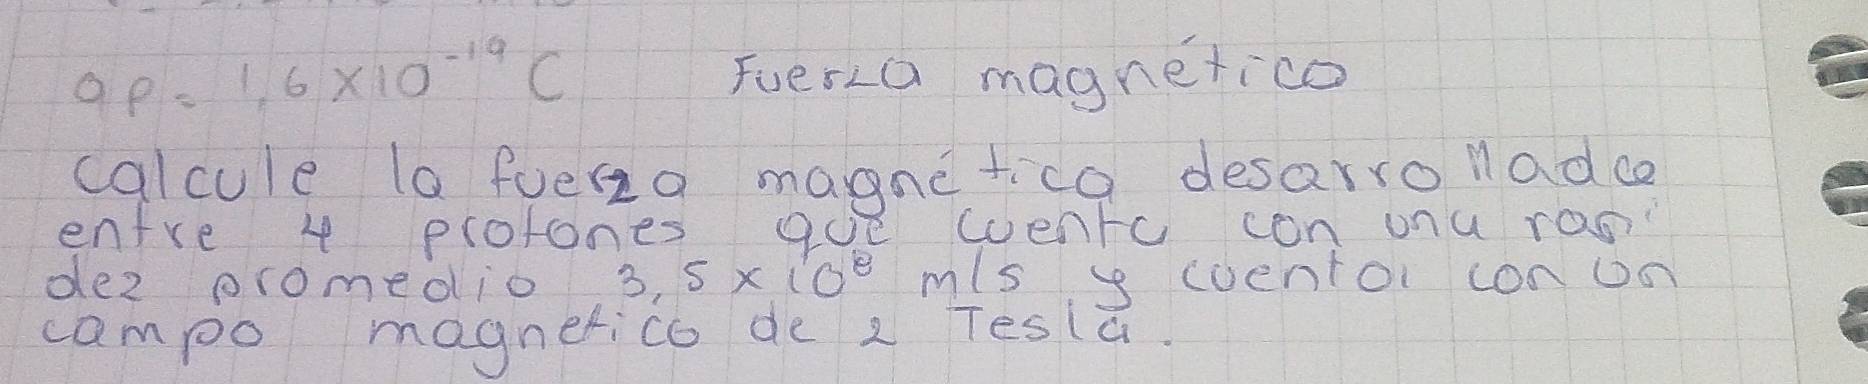 qp = 1,6x10⁻¹⁹ C Fuerza magnético
calcule la fuerza magnética desarrollada
entre 4 protones que cuenta con una rapi
dez promedio 3,5 x 10⁸ m/s y cuenta con un
campo magnetico de 2 Tesla.